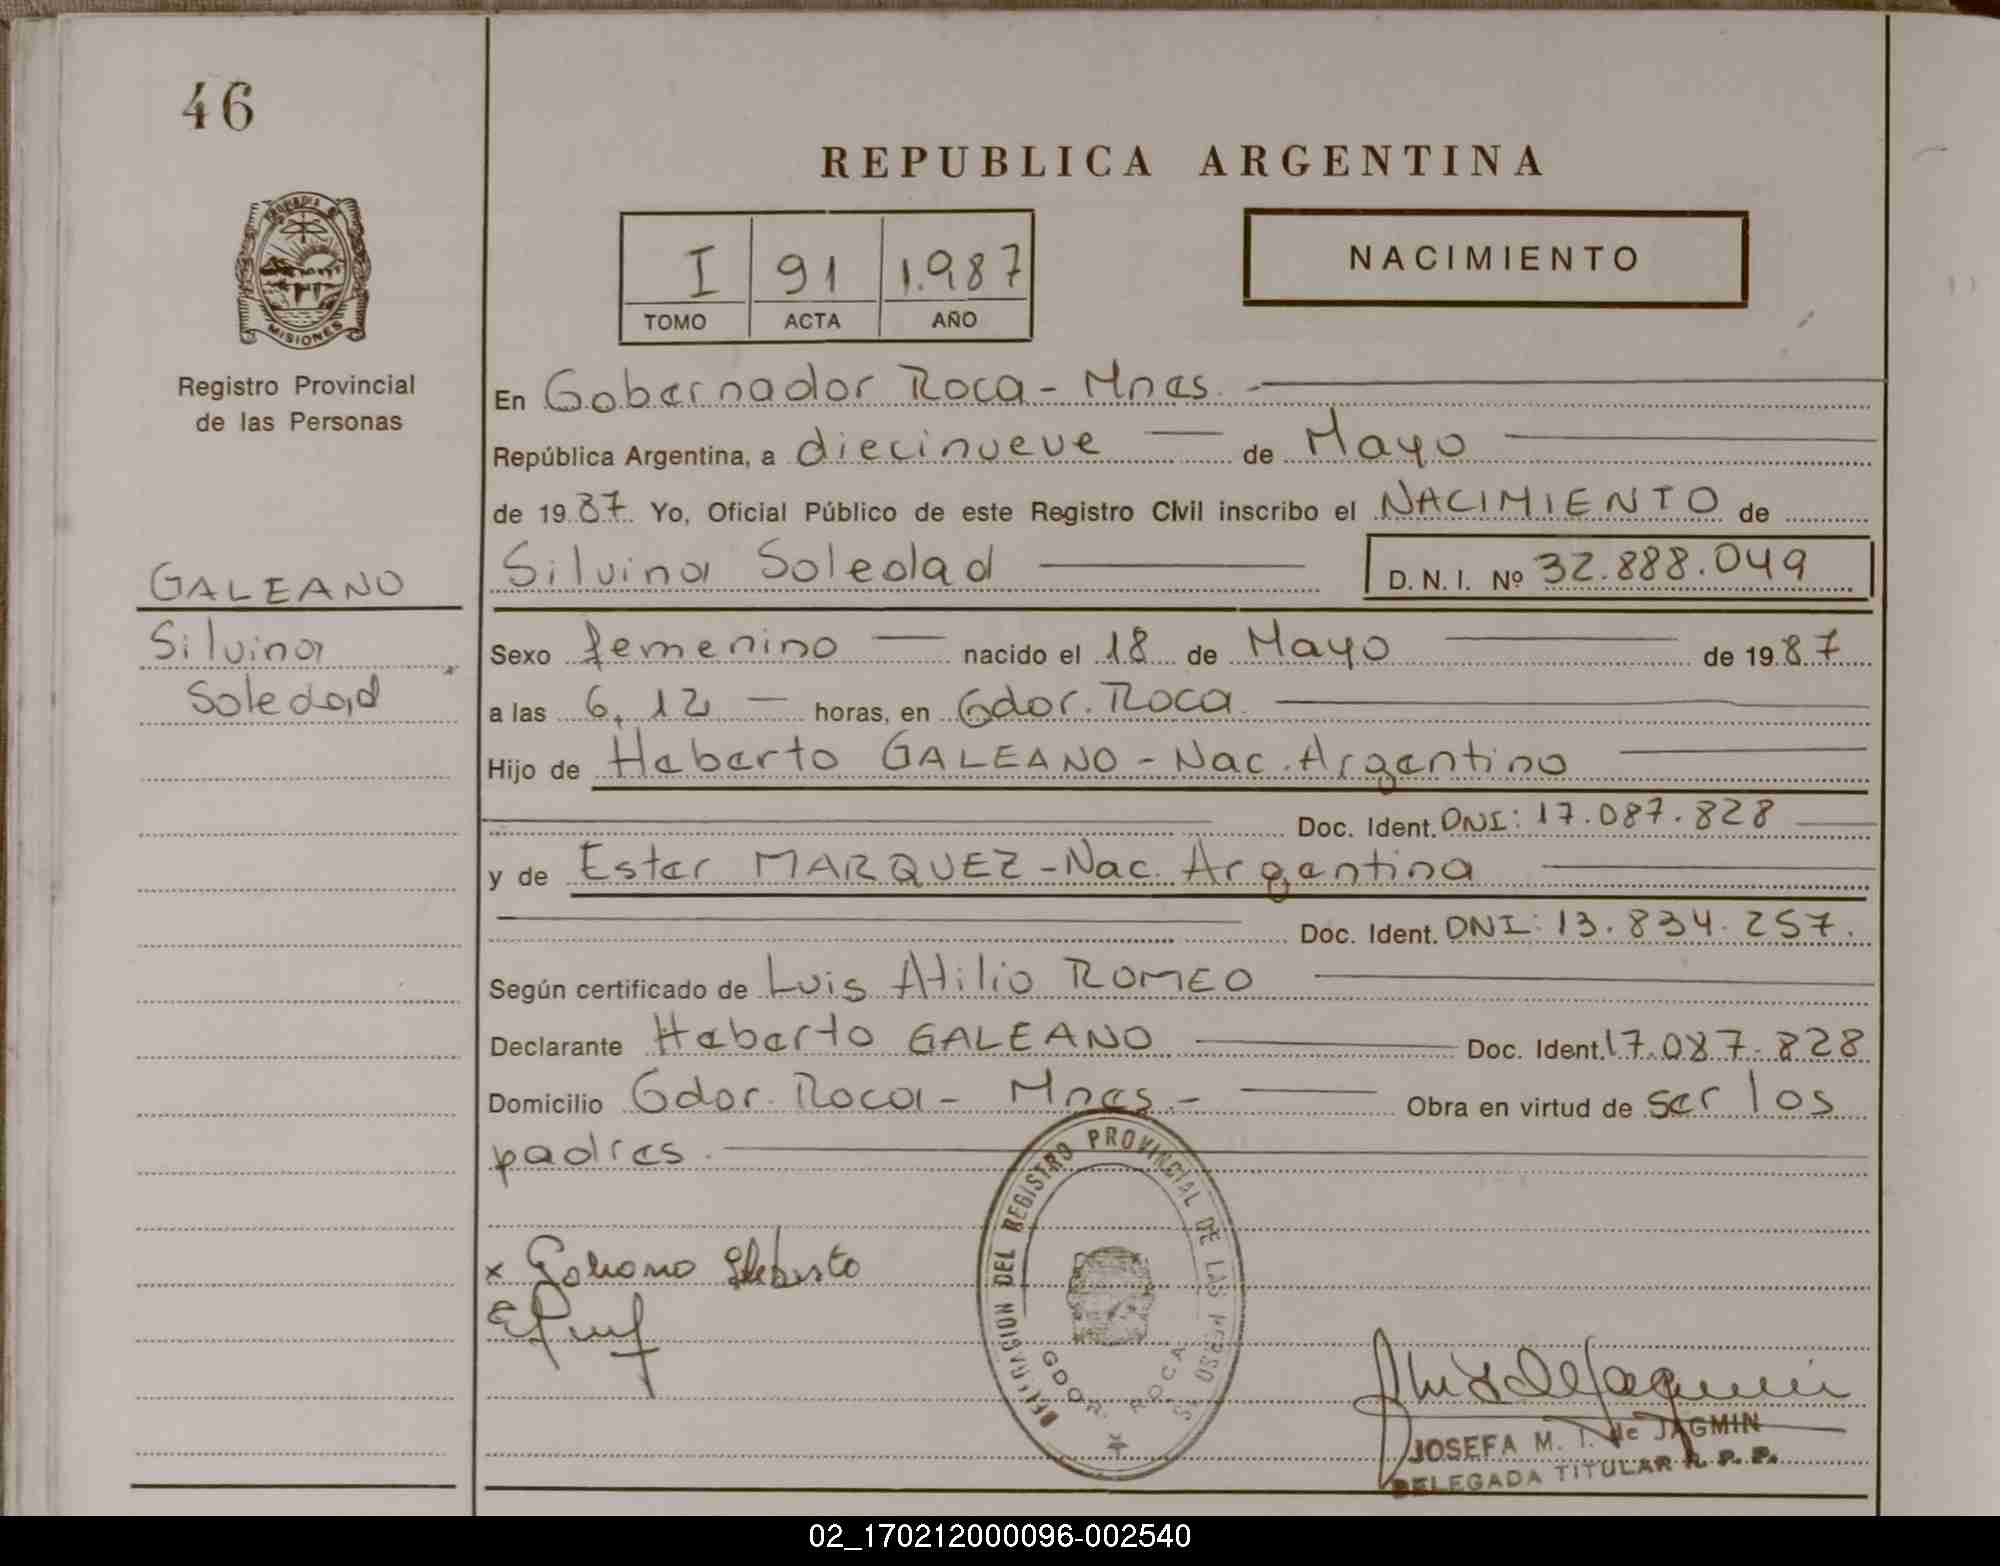 46
REPUBLICA ARGENTINA
PROVINCIA DE
MISIONES
Registro Provincial
de las Personas
I 91 1.987
TOMO ACTA AÑO
NACIMIENTO
En Gobernador Roca - Mnes.
República Argentina, a diecinueve de Mayo
de 1987. Yo, Oficial Público de este Registro Civil inscribo el NACIMIENTO de
GALEANO
Silvina
Soledad
Silvina Soledad D. N. I. Nº 32.888.049
Sexo femenino nacido el 18 de Mayo de 1987
a las 6,12 horas, en Gdor. Roca
Hijo de Heberto GALEANO - Nac. Argentino
Doc. Ident. DNI: 17.087.828
y de Ester MARQUEZ - Nac. Argentina
Doc. Ident. DNI: 13.834.257.
Según certificado de Luis Atilio ROMEO
Declarante Heberto GALEANO Doc. Ident. 17.087.828
Domicilio Gdor. Roca - Mnes - Obra en virtud de ser los
padres.
x Galeano Heberto
DELEGACION DEL REGISTRO PROVINCIAL DE LAS PERSONAS
GDOR. ROCA
JOSEFA M. T. de JAGMIN
DELEGADA TITULAR R. P. P.
02_170212000096-002540